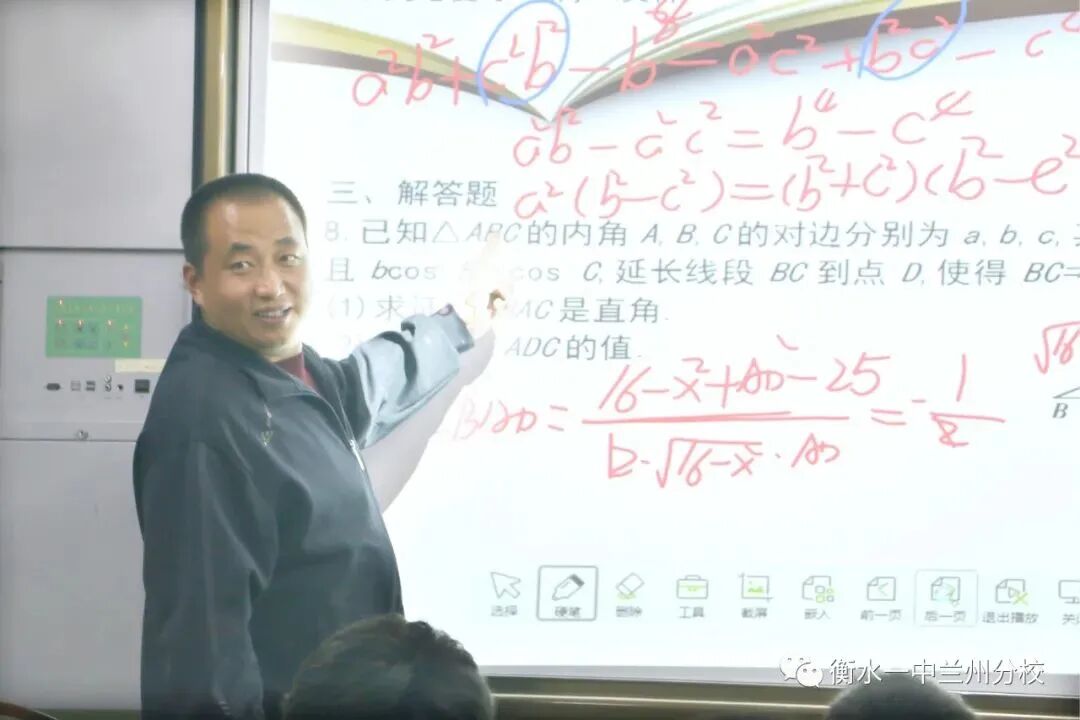 a²b²+c²b²-b⁴-a²c²+b²c²-c
a²b²-a²c²=b⁴-c⁴
a²(b²-c²)=(b²+c²)(b²-c²
三、解答题
8.已知△ABC的内角 A,B,C的对边分别为 a,b,c,
且 bcos cos C,延长线段 BC 到点 D,使得 BC=
(1)求证 AC是直角.
ADC的值.
16-x²+AD²-25
BAD= = -1/2
2·√16-x²·AD
√16
B
选择 硬笔 删除 工具 截屏 嵌入 前一页 后一页 退出播放 关
衡水一中兰州分校